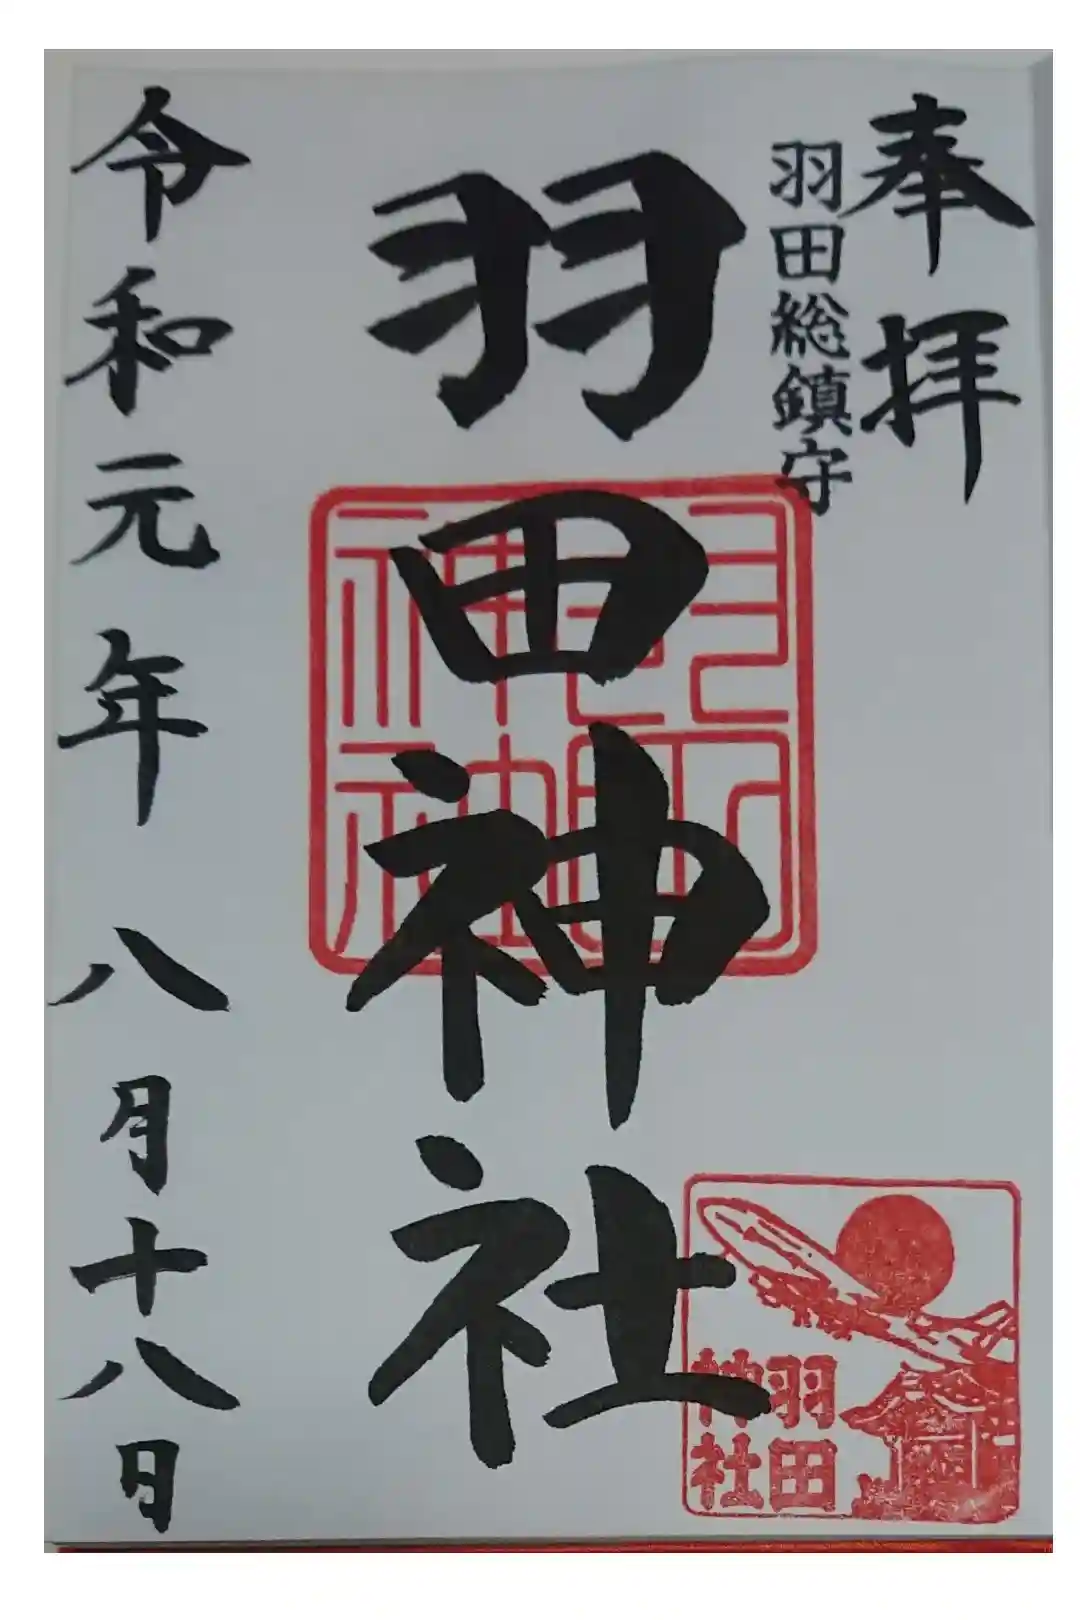 奉拝
羽田総鎮守
羽田神社
羽田神社
羽田
神社
令和元年八月十八日